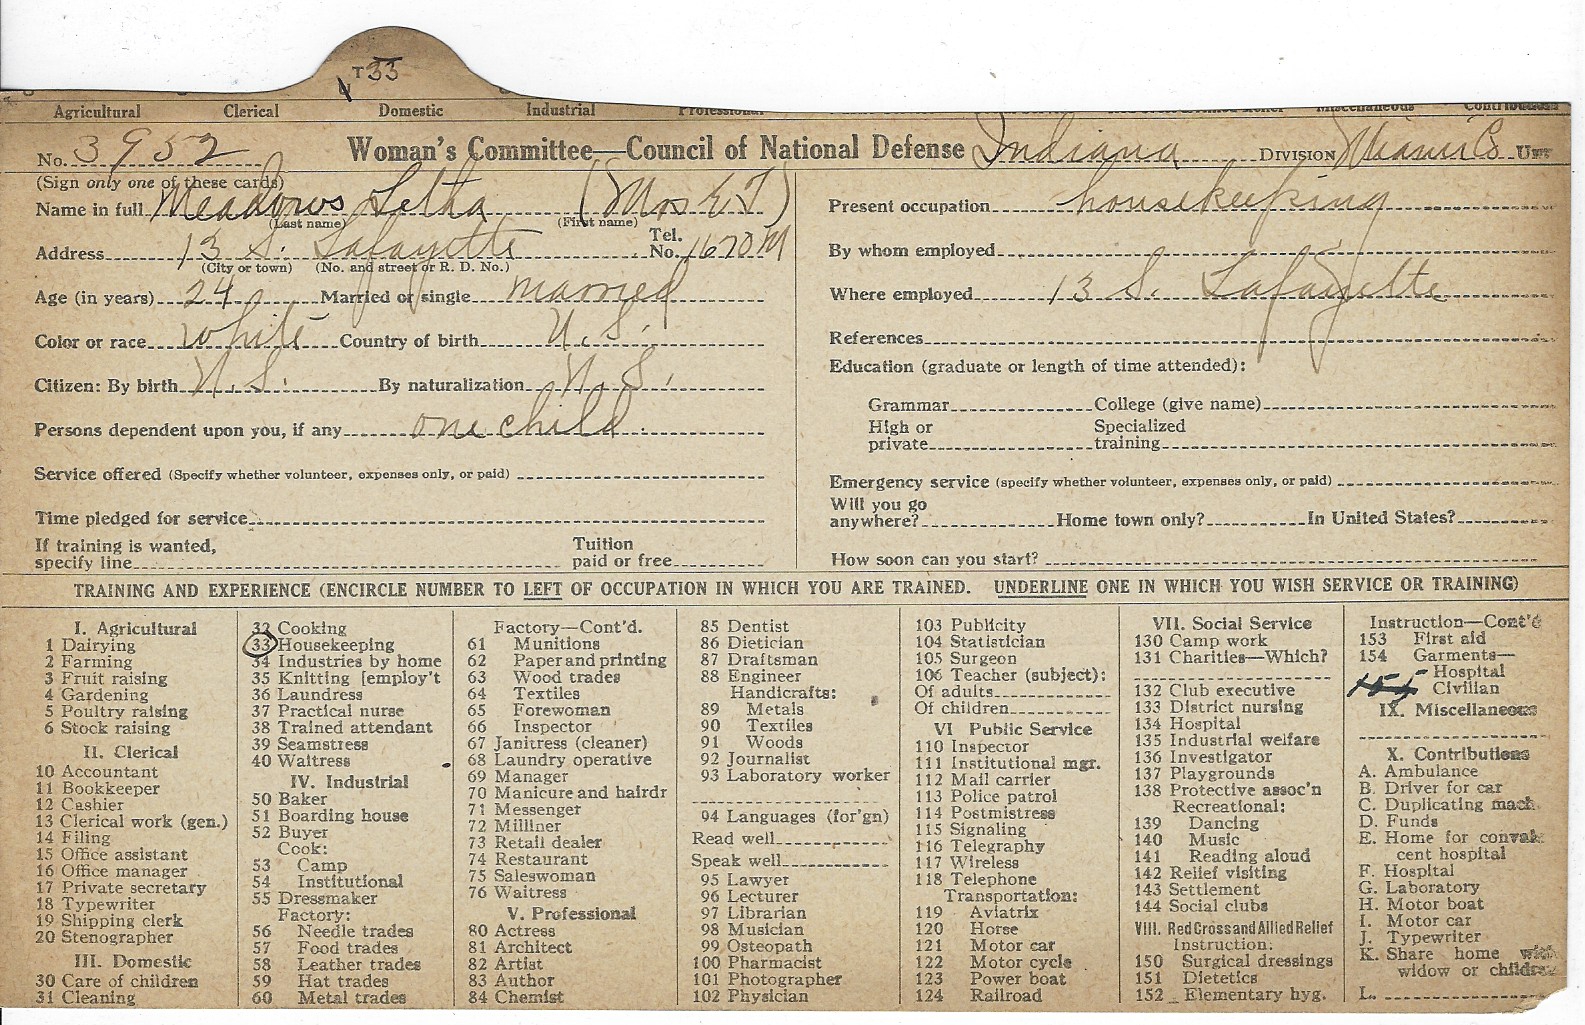 T33
Agricultural Clerical Domestic Industrial Professional Miscellaneous Contributions
No. 3952 Woman's Committee—Council of National Defense Indiana DIVISION Miami Co UNIT
(Sign only one of these cards)
Name in full Meadows Letha (Mrs E T)
(Last name) (First name)
Address 13 S. Lafayette Tel. No. 1670M
(City or town) (No. and street or R. D. No.)
Age (in years) 24 Married or single married
Color or race white Country of birth U. S.
Citizen: By birth U. S. By naturalization U. S.
Persons dependent upon you, if any one child
Service offered (Specify whether volunteer, expenses only, or paid)
Time pledged for service
If training is wanted, specify line Tuition paid or free
Present occupation housekeeping
By whom employed
Where employed 13 S. Lafayette
References
Education (graduate or length of time attended):
Grammar College (give name)
High or private Specialized training
Emergency service (specify whether volunteer, expenses only, or paid)
Will you go anywhere? Home town only? In United States?
How soon can you start?
TRAINING AND EXPERIENCE (ENCIRCLE NUMBER TO LEFT OF OCCUPATION IN WHICH YOU ARE TRAINED. UNDERLINE ONE IN WHICH YOU WISH SERVICE OR TRAINING)
I. Agricultural
1 Dairying
2 Farming
3 Fruit raising
4 Gardening
5 Poultry raising
6 Stock raising
II. Clerical
10 Accountant
11 Bookkeeper
12 Cashier
13 Clerical work (gen.)
14 Filing
15 Office assistant
16 Office manager
17 Private secretary
18 Typewriter
19 Shipping clerk
20 Stenographer
III. Domestic
30 Care of children
31 Cleaning
32 Cooking
33 Housekeeping
34 Industries by home
35 Knitting [employ't
36 Laundress
37 Practical nurse
38 Trained attendant
39 Seamstress
40 Waitress
IV. Industrial
50 Baker
51 Boarding house
52 Buyer
Cook:
53 Camp
54 Institutional
55 Dressmaker
Factory:
56 Needle trades
57 Food trades
58 Leather trades
59 Hat trades
60 Metal trades
Factory—Cont'd.
61 Munitions
62 Paper and printing
63 Wood trades
64 Textiles
65 Forewoman
66 Inspector
67 Janitress (cleaner)
68 Laundry operative
69 Manager
70 Manicure and hairdr
71 Messenger
72 Milliner
73 Retail dealer
74 Restaurant
75 Saleswoman
76 Waitress
V. Professional
80 Actress
81 Architect
82 Artist
83 Author
84 Chemist
85 Dentist
86 Dietician
87 Draftsman
88 Engineer
Handicrafts:
89 Metals
90 Textiles
91 Woods
92 Journalist
93 Laboratory worker
94 Languages (for'gn)
Read well
Speak well
95 Lawyer
96 Lecturer
97 Librarian
98 Musician
99 Osteopath
100 Pharmacist
101 Photographer
102 Physician
103 Publicity
104 Statistician
105 Surgeon
106 Teacher (subject):
Of adults
Of children
VI Public Service
110 Inspector
111 Institutional mgr.
112 Mail carrier
113 Police patrol
114 Postmistress
115 Signaling
116 Telegraphy
117 Wireless
118 Telephone
Transportation:
119 Aviatrix
120 Horse
121 Motor car
122 Motor cycle
123 Power boat
124 Railroad
VII. Social Service
130 Camp work
131 Charities—Which?
132 Club executive
133 District nursing
134 Hospital
135 Industrial welfare
136 Investigator
137 Playgrounds
138 Protective assoc'n
Recreational:
139 Dancing
140 Music
141 Reading aloud
142 Relief visiting
143 Settlement
144 Social clubs
VIII. Red Cross and Allied Relief
Instruction:
150 Surgical dressings
151 Dietetics
152 Elementary hyg.
Instruction—Cont'd
153 First aid
154 Garments—
Hospital
155 Civilian
IX. Miscellaneous
X. Contributions
A. Ambulance
B. Driver for car
C. Duplicating mach.
D. Funds
E. Home for convalescent hospital
F. Hospital
G. Laboratory
H. Motor boat
I. Motor car
J. Typewriter
K. Share home with widow or children
L.